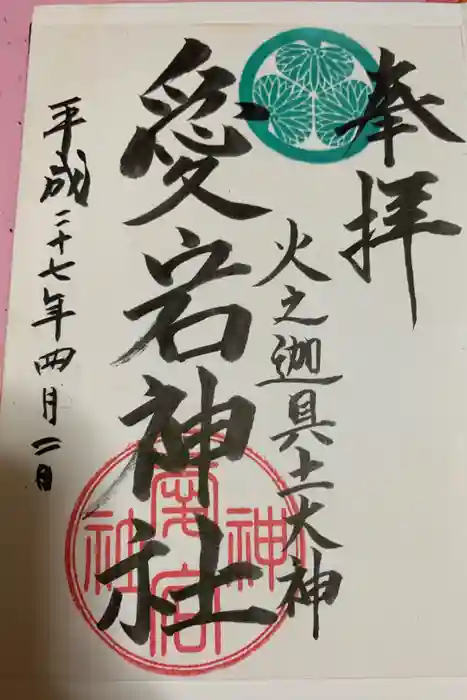 奉拝
火之迦具土大神
愛宕神社
平成二十七年四月二日